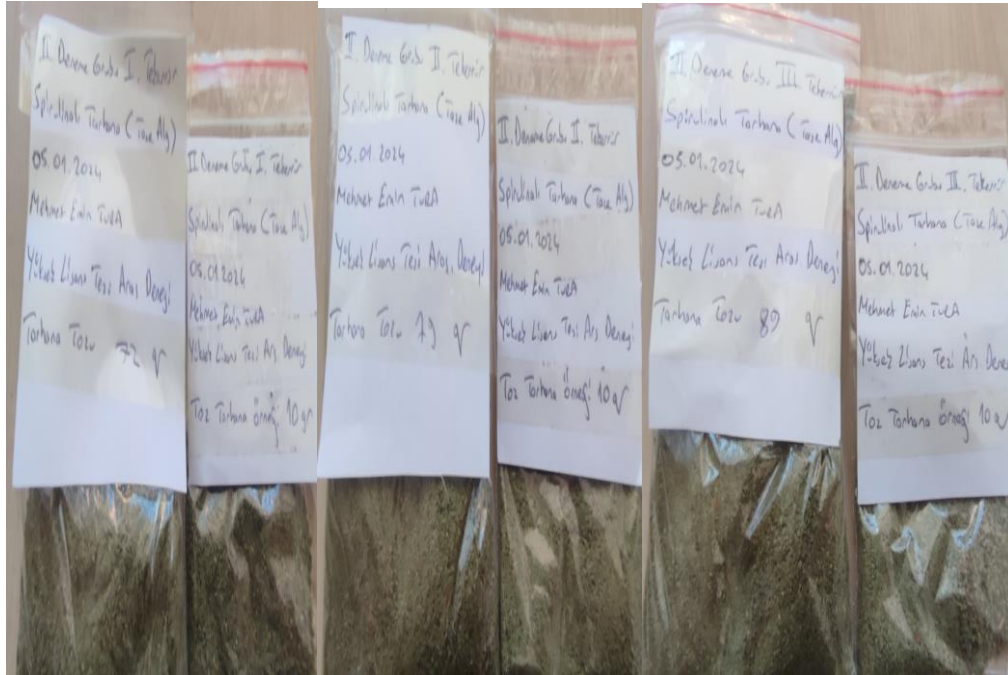 II. Deneme Grubu I. Tekerrür
Spirulinalı Tarhana (Taze Alg)
05.01.2024
Mehmet Emin TURA
Yüksek Lisans Tezi Araş Deneyi
Tarhana Tozu 72 gr
II. Deneme Grubu I. Tekerrür
Spirulinalı Tarhana (Taze Alg)
05.01.2024
Mehmet Emin TURA
Yüksek Lisans Tezi Arş Deneyi
Toz Tarhana Örneği 10 gr
II. Deneme Grubu II. Tekerrür
Spirulinalı Tarhana (Taze Alg)
05.01.2024
Mehmet Emin TURA
Yüksek Lisans Tezi Araş. Deneyi
Tarhana Tozu 79 gr
II. Deneme Grubu II. Tekerrür
Spirulinalı Tarhana (Taze Alg)
05.01.2024
Mehmet Emin TURA
Yüksek Lisans Tezi Arş Deneyi
Toz Tarhana Örneği 10 gr
II. Deneme Grubu III. Tekerrür
Spirulinalı Tarhana (Taze Alg)
05.01.2024
Mehmet Emin TURA
Yüksek Lisans Tezi Araş Deneyi
Tarhana Tozu 89 gr
II. Deneme Grubu III. Tekerrür
Spirulinalı Tarhana (Taze Alg)
05.01.2024
Mehmet Emin TURA
Yüksek Lisans Tezi Arş Deney
Toz Tarhana Örneği 10 gr